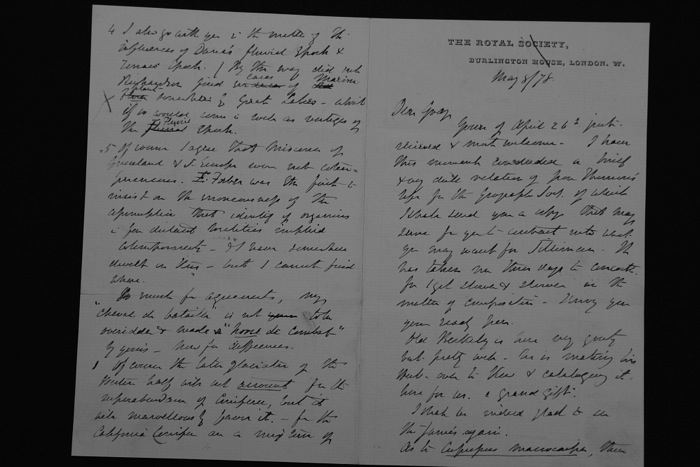 4 I also go with you in the matter of the
influences of Dana's fluvial epoch &
Terrace epoch. / By the way did not
Richardson find cases of Marine
plants on Great Lakes – which
if so would come in well as vestiges of
the Fluvial epoch.
5 Of course I agree that Miocenes of
Greenland & of Europe were not contem-
poraneous. E. Forbes was the first to
insist on the erroneousness of the
assumption that identity of organisms
in far distant localities implied
contemporaneity – I have somewhere
dwelt on this – but I cannot find
where.
So much for agreements, my
"cheval de bataille" is not to be
overidden & made "hors de combat"
by yours – now for differences.
1 Of course the later glaciation of the
Western half will not account for the
superabundance of Coniferae, but it
will marvellously favor it. – for the
California Conifer are a mixture of
THE ROYAL SOCIETY,
BURLINGTON HOUSE, LONDON. W.
May 8/78
Dear Gray
Yours of April 26th just
received & most welcome. I have
this moment concluded a brief
& very dull relation of from
for the Geograph Soc. of which
I shall send you a copy that may
serve for you to extract into what
you may want for Silliman. It
has taken me three days to
for I get slower & slower in the
matter of composition – I envy you
your ready pen.
Old Berkeley is here very gouty
but pretty well. he is making his
Herb. over to Kew & cataloguing it
here for us. a grand gift.
I shall be indeed glad to see
the James again.
As to Cupressus macrocarpa, there